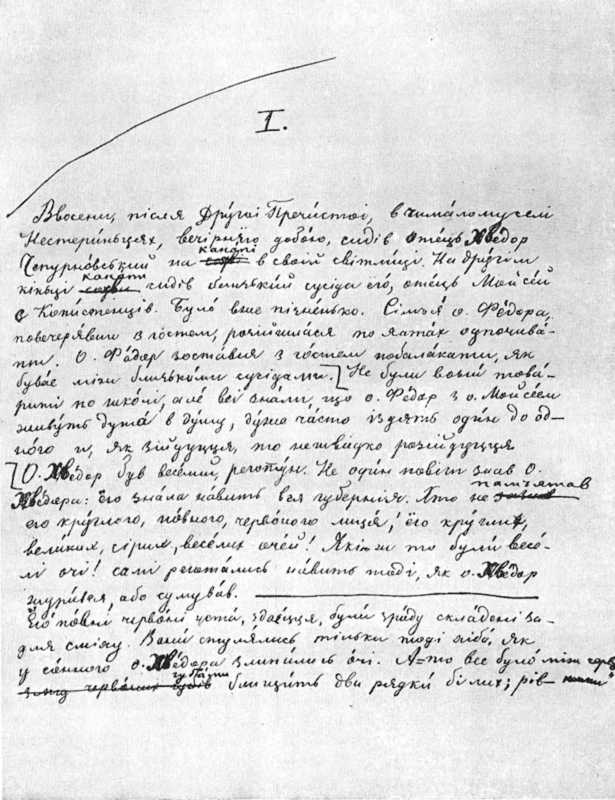 I.
Ввосени, після Другоі Пречистоі, в чималому селі
Нестеринцях, вечірнёго добою, сидів отець Хведор
Чепурновський на канапі софі в своій світлиці. На другім
кіньці канапи софи сидів близький сусіда ёго, отець Мойсей
с Кописпенців. Було вже пізненько. Сімъя о. Федора,
повечерявши з гостем, розійшлася по хатах одпочива-
ти. О. Федор зоставсь з гостем побалакати, як
буває міжи близькими сусідами. Не були вони това-
риші по школі, але всі знали що о. Федор з о. Мойсеєм
живуть душа в душу, дуже часто іздять один до од-
ного и, як зійдуцця, то нешвидко розійдуцця
О. Хведор був веселий, реготун. Не один повіт знав о.
Хведора: ёго знала навить вся губернія. Хто не памъятав
ёго круглого, повного, червоного лиця, ёго кругли,
великих, сірих, веселих очей! Якіж то були весе-
лі очі! самі реготались навить тоді, як о. Хведор
журився, або сумував.
Ёго повні червоні уста, здаєцця, були зразу складені за-
для сміху. Вони стулялись тільки тоді хиба, як
у сонного о. Хведора злипались очі. А-то все було між
губами
з-під червоних губів блищать два рядки білих; рів-